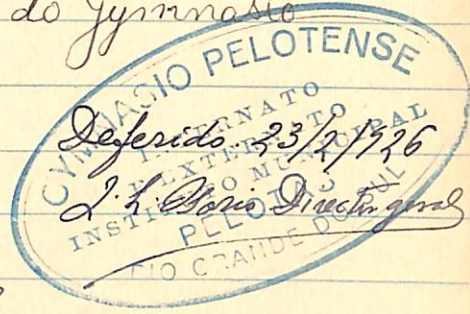 do Gymnasio
GYMNASIO PELOTENSE
INTERNATO
E EXTERNATO
INSTITUTO MUNICIPAL
PELOTAS
RIO GRANDE DO SUL
Deferido. 23/2/1926
Director geral